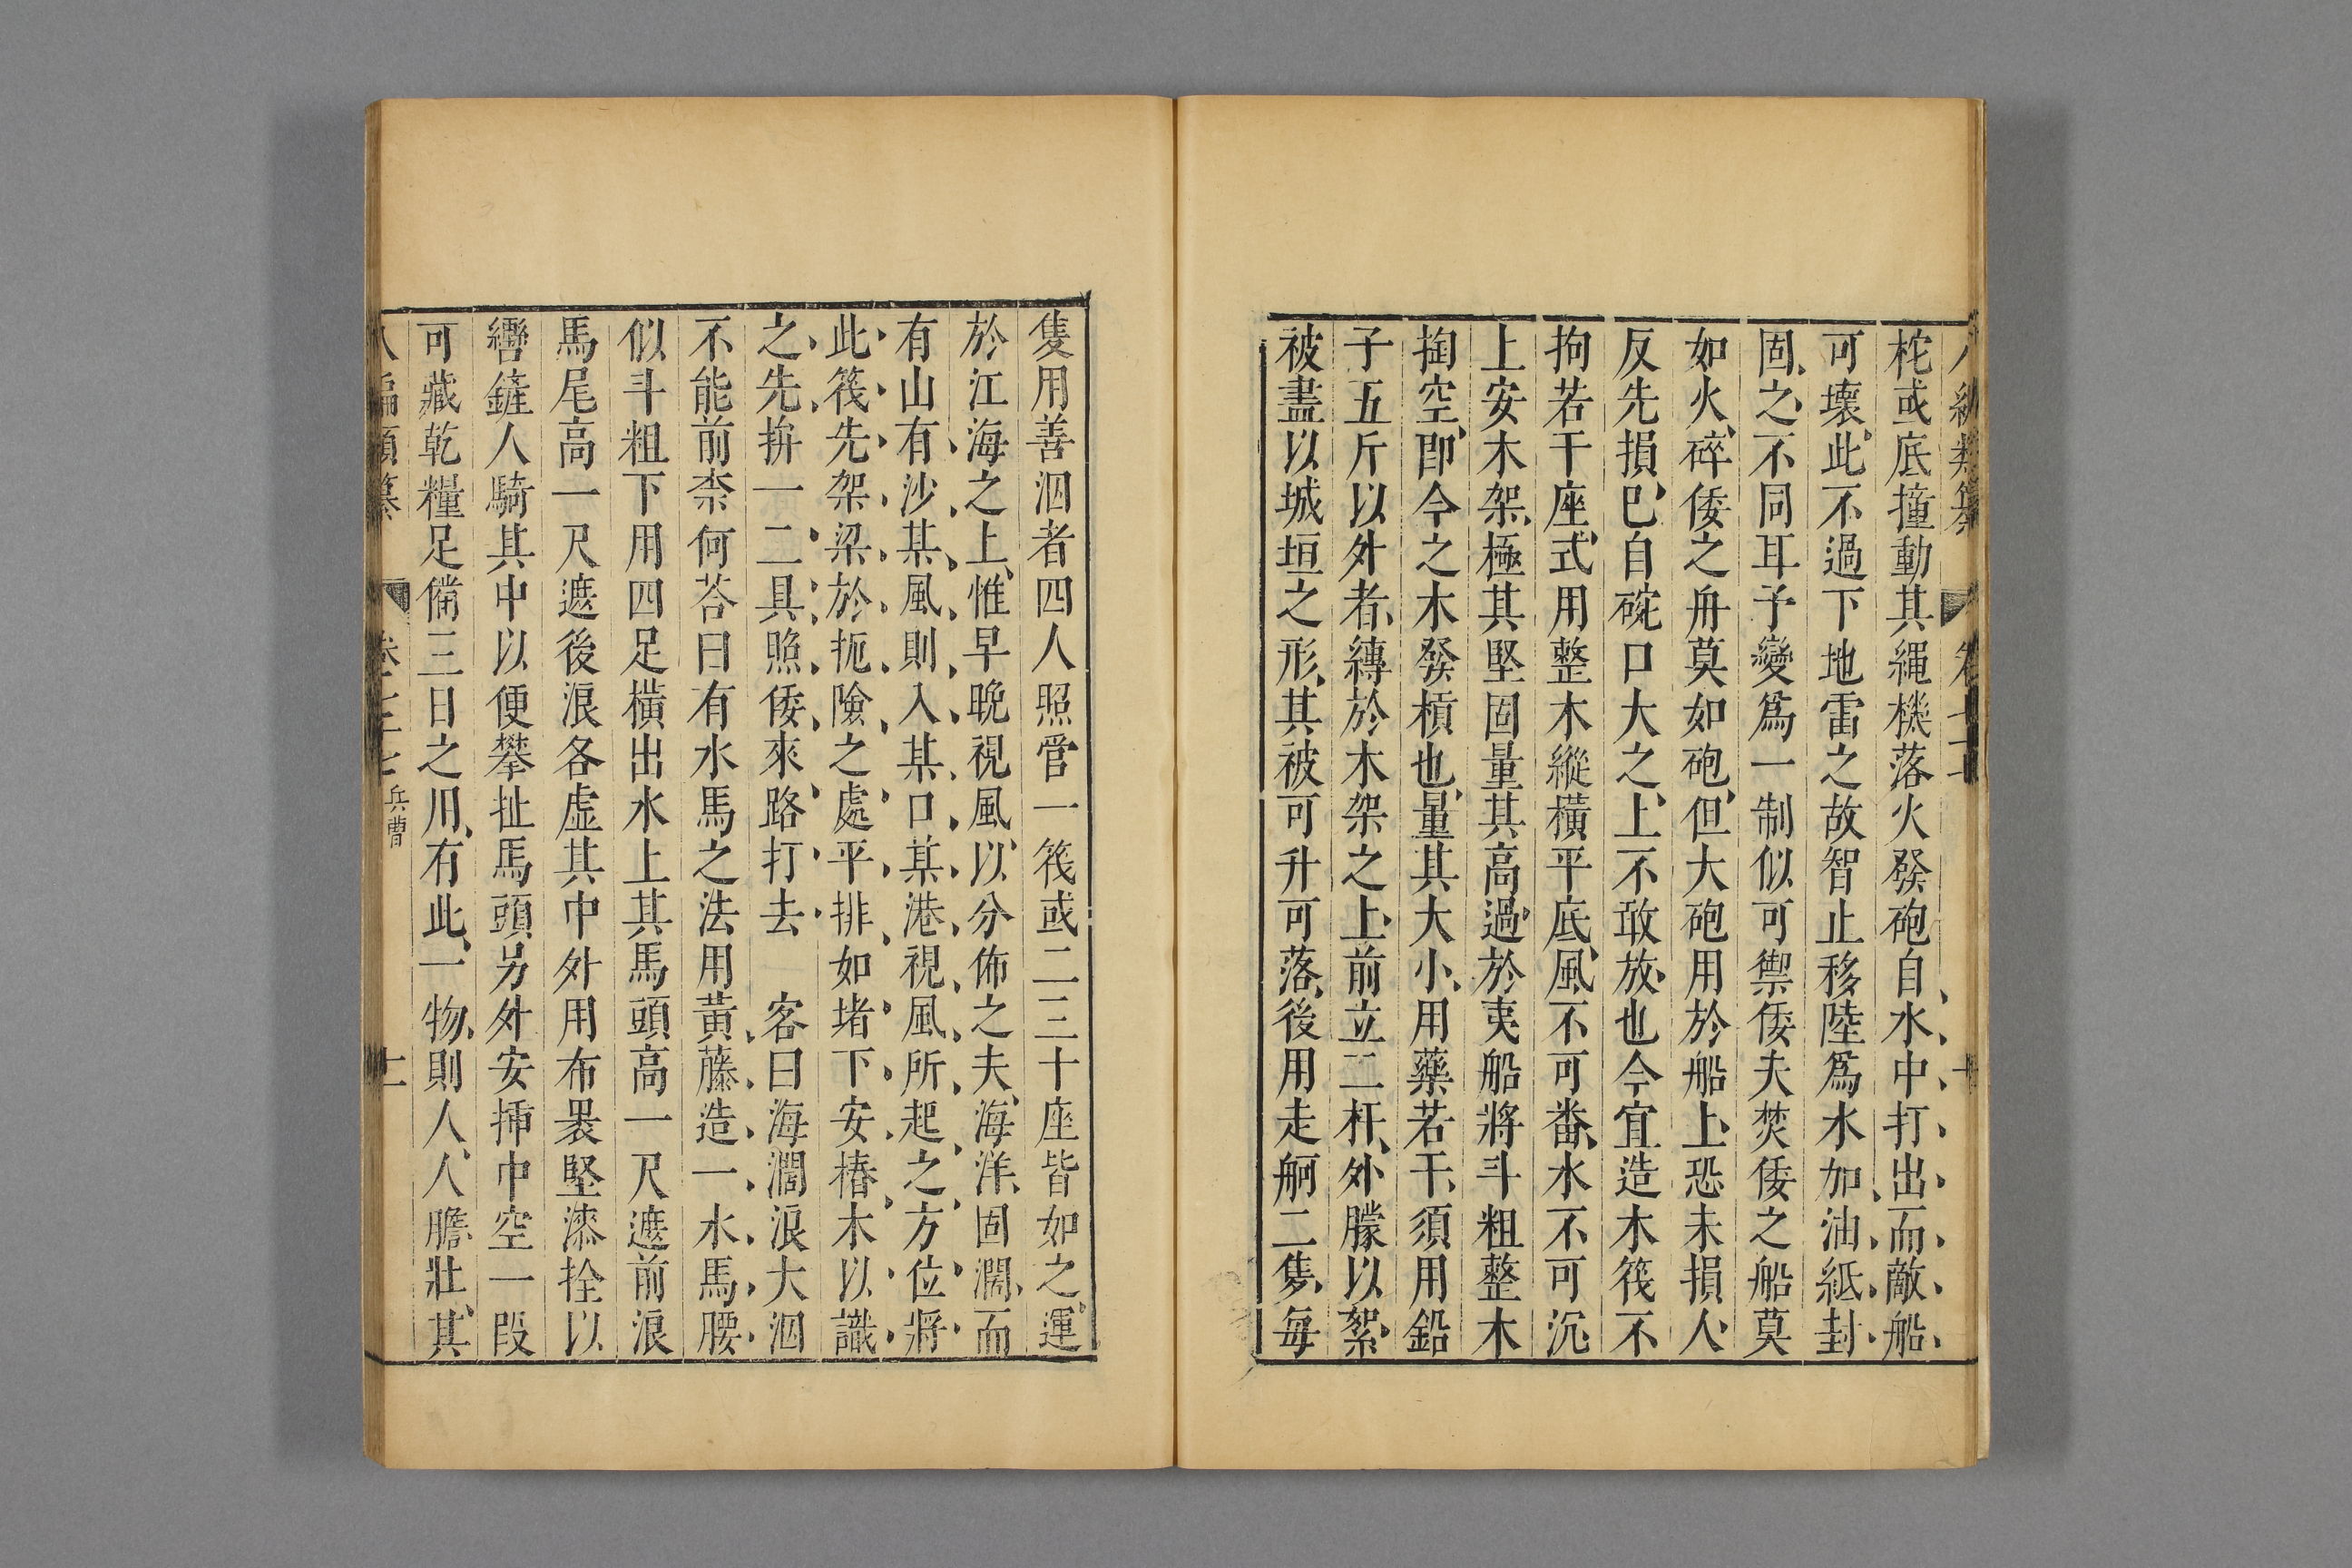 柁或底撞動其繩機落火發砲自水中打出而敵船
可壞此不過下地雷之故智止移陸爲水加油紙封
固之不同耳予變爲一制似可禦倭夫焚倭之船莫
如火碎倭之舟莫如砲但大砲用於船上恐未損人
反先損巳自碇口大之上不敢放也今宜造木筏不
拘若干座式用整木縱橫平底風不可畨水不可沉
上安木架極其堅固量其高過於夷船將斗粗整木
掏空卽今之木發槓也量其大小用藥若干須用鉛
子五斤以外者縛於木架之上前立二杆外朦以絮
被盡以城垣之形其被可升可落後用走舸二隻每
隻用善泅者四人照管一筏或二三十座皆如之運
於江海之上惟早晚視風以分佈之夫海洋固濶而
有山有沙某風則入某口某港視風所起之方位將
此筏先架梁於扼險之處平排如堵下安樁木以識
之先拚一二具照倭來路打去 客曰海濶浪大泅
不能前柰何荅曰有水馬之法用黃藤造一水馬腰
似斗粗下用四足橫出水上其馬頭高一尺遮前浪
馬尾高一尺遮後浪各虛其中外用布褁堅漆拴以
轡鏟人騎其中以便攀扯馬頭另外安揷中空一段
可藏乾糧足備三日之用有此一物則人人膽壯其
八編類纂 卷 兵曹 十一